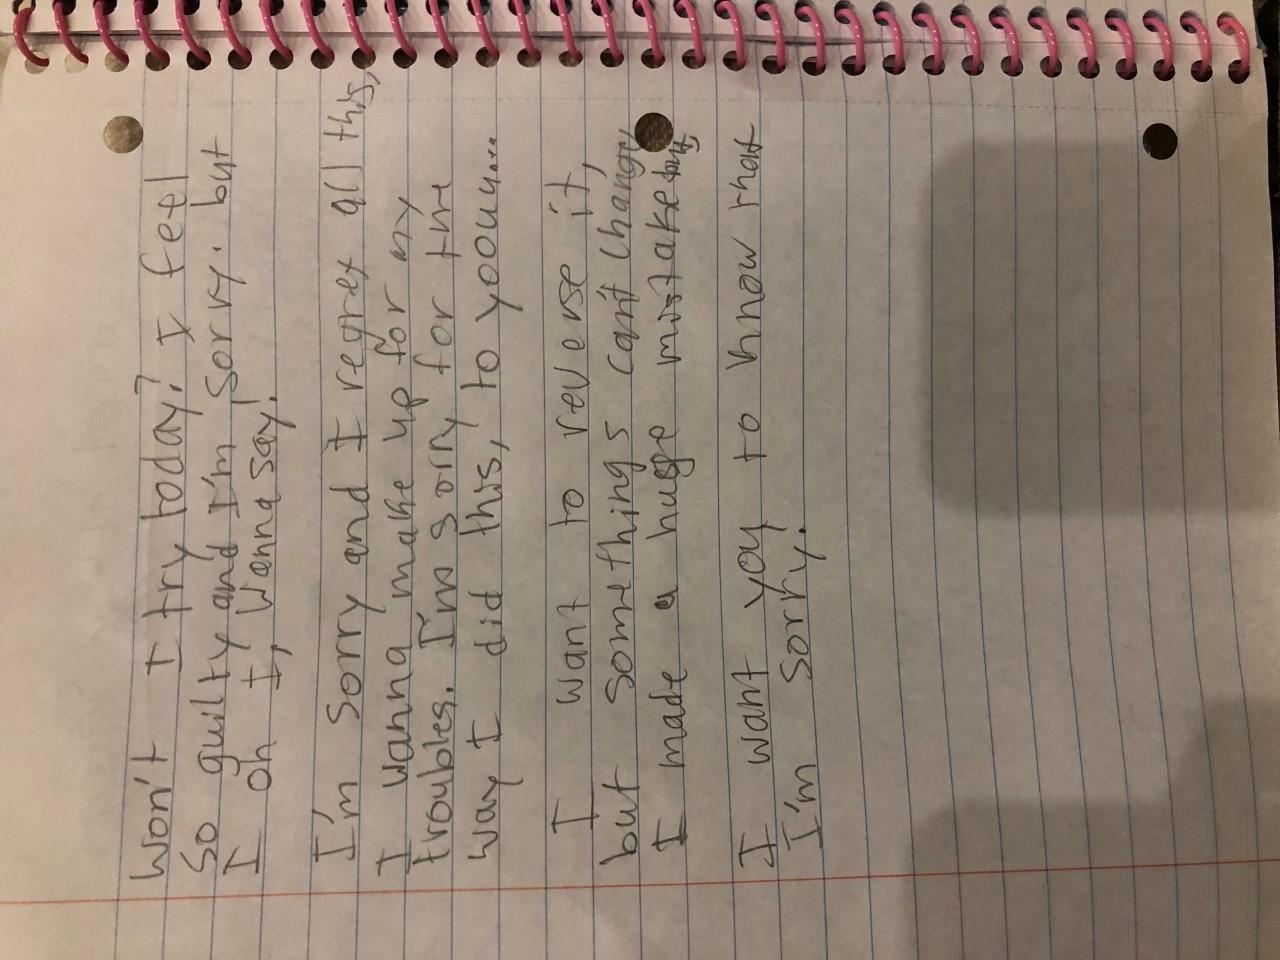 Won't I try today? I feel
so guilty and I'm sorry. but
I oh I, wanna say!
I'm sorry and I regret all this,
I wanna make up for my
troubles. I'm sorry for the
way I did this, to yoouu...
I want to reverse it,
but something's can't change,
I made a huge mistake but,
I want you to know that
I'm sorry.